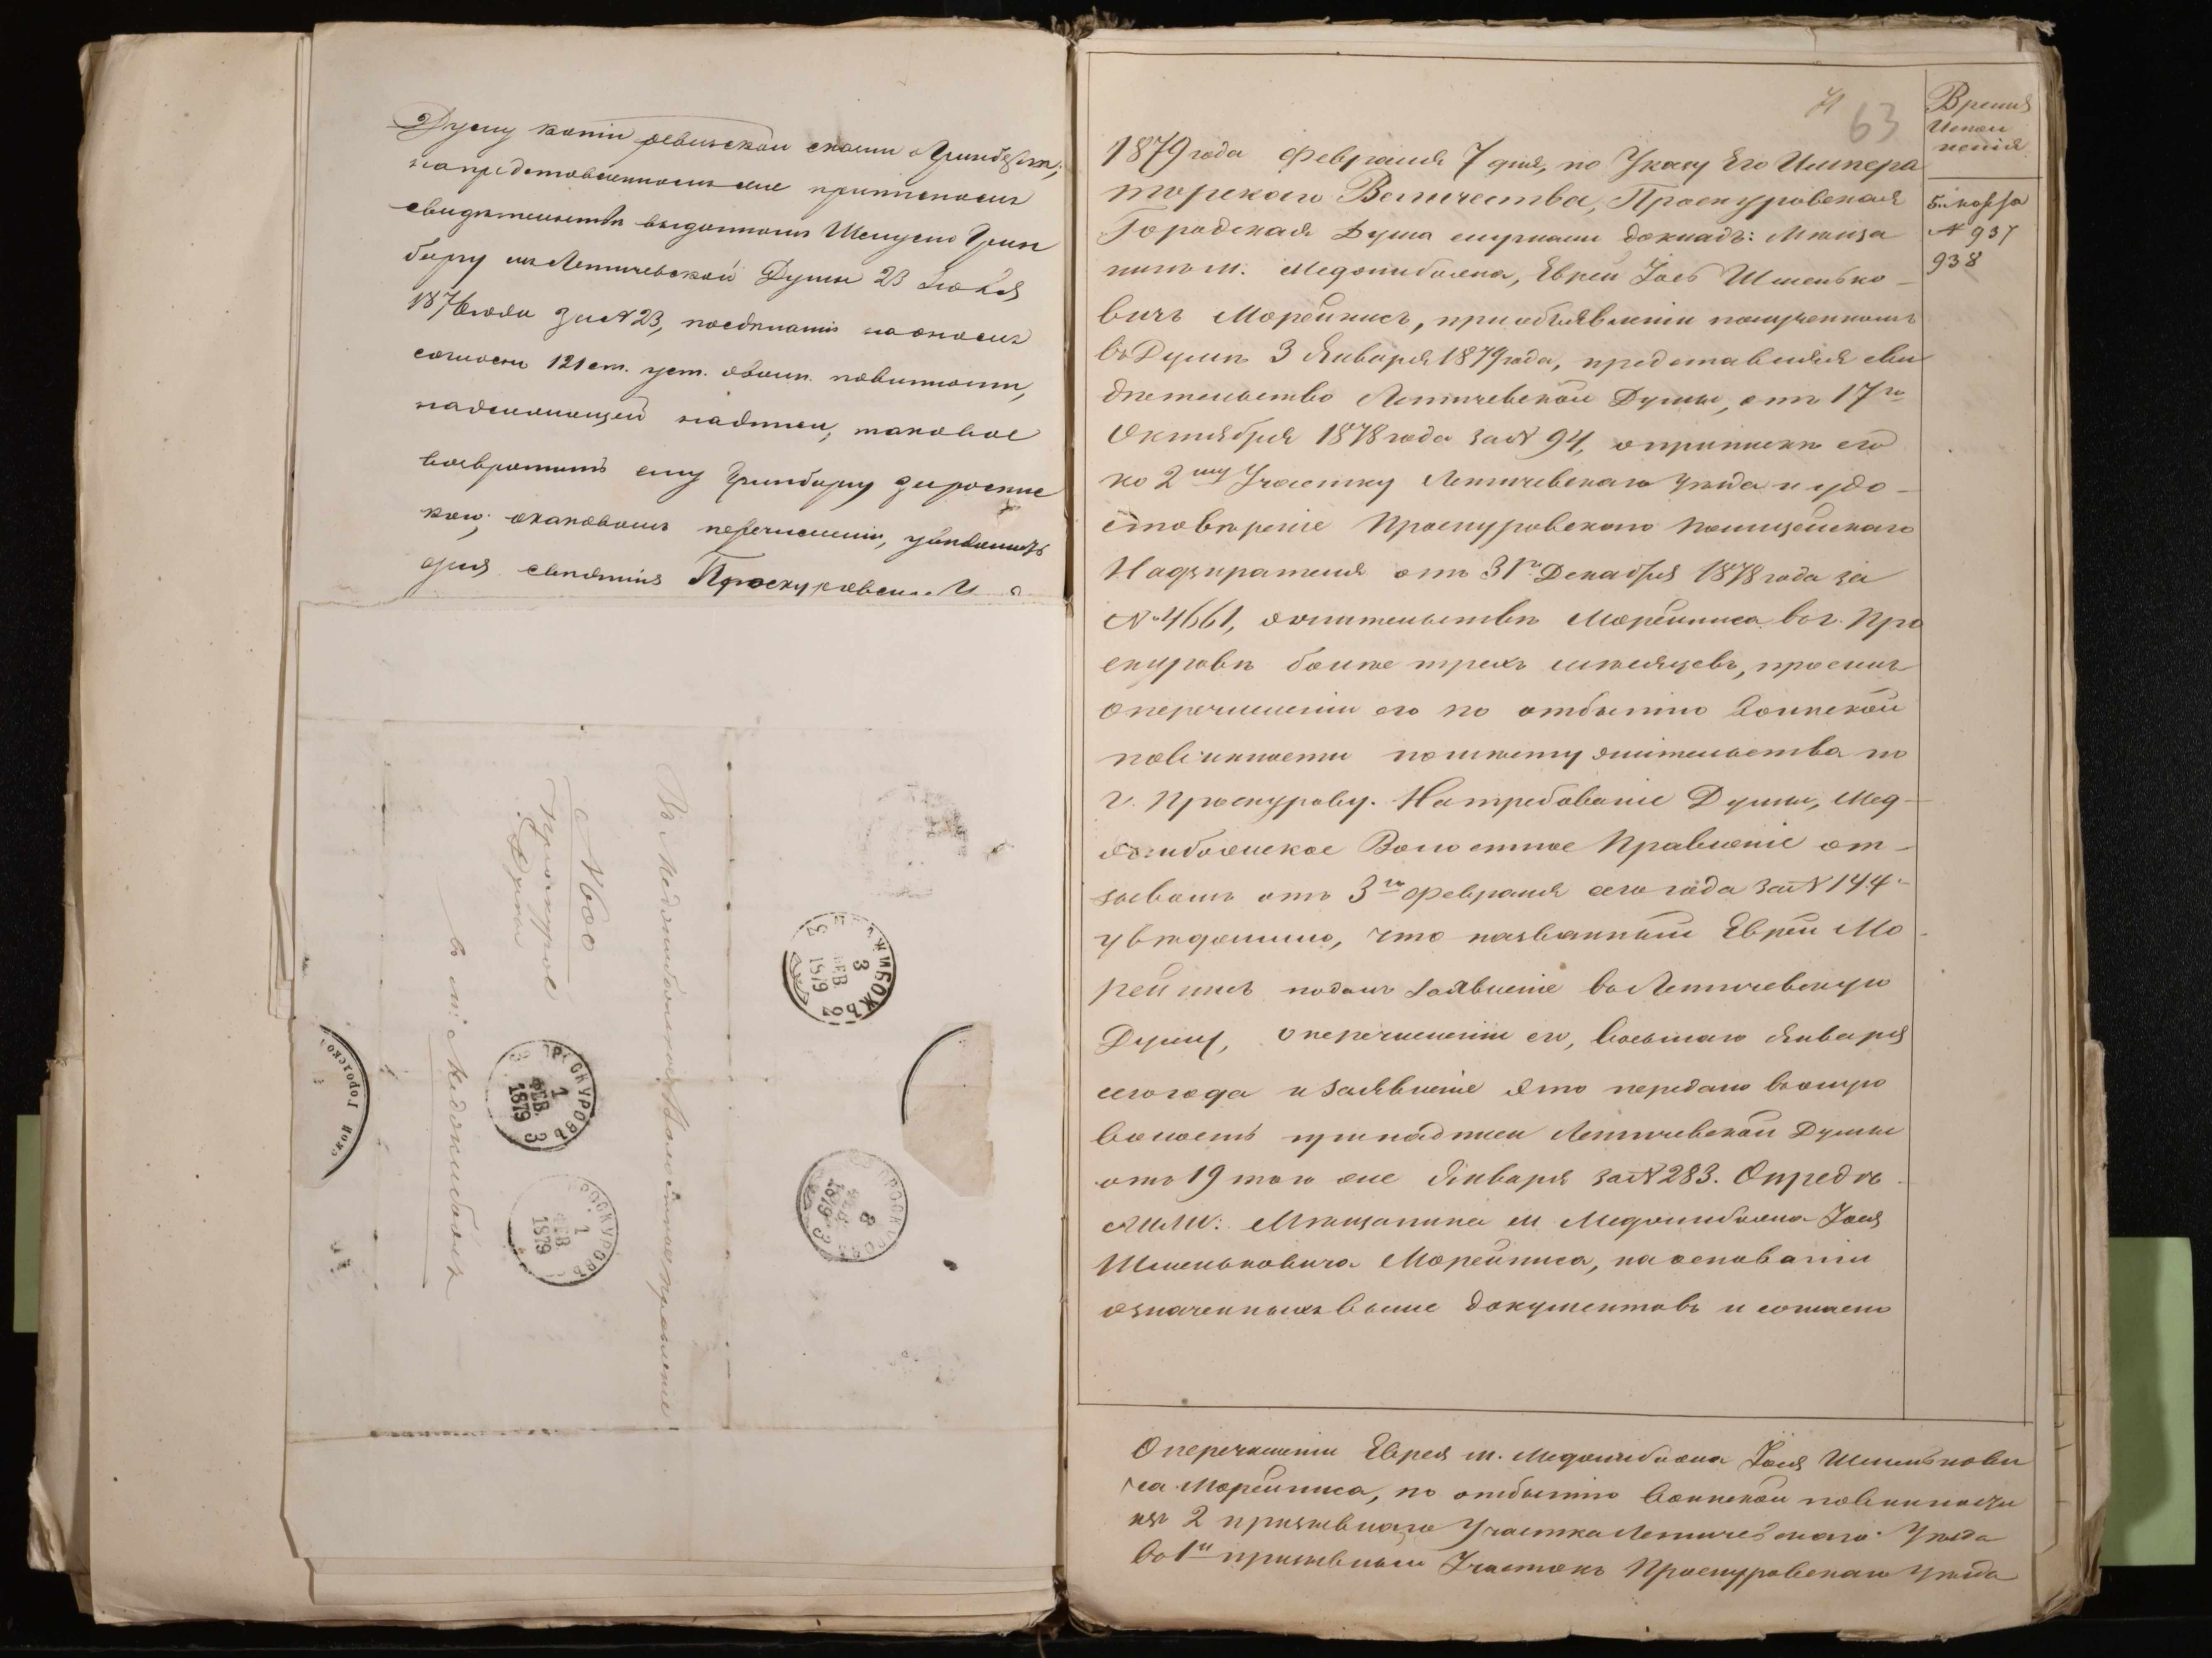 Думу копіи ревизской сказки о Гринберге,
на представленномъ же приписномъ
свидетельстве выданномъ Шмулю Грин
бергу изъ Летичевской Думы 23 Іюля
1876 года за № 23, поседланіи на ономъ
согласно 121 ст. уст. о воин. повинности,
надлежащей надписи, таковое
возвратить ему Гринбергу за роспис
кою; о каковомъ перечисленіи, уведомить
для сведенія Проскуровск
№ 600
Проскуров.
Дума
Въ Меджибожское Волостное правленіе
въ м: Меджибожъ
МЕДЖИБОЖЪ
3
ФЕВ
1879
2
ПРОСКУРОВЪ
1
ФЕВ.
1879
3
ПРОСКУРОВЪ
1
ФЕВ
1879
ПРОСКУРОВЪ
8
ФЕВ.
1879
3
Городско
63
Время
Испол
ненія
5 марта
№ 937
938
1879 года Февраля 7 дня, по Указу Его Импера
торскаго Величества, Проскуровская
Городская Дума слушали докладъ: Мѣща
нинъ м. Меджибожа, Еврей Іось Шмелько-
вичъ Морейнисъ, при объявленіи полученномъ
въ Думѣ 3 Января 1879 года, представляя сви
дѣтельство Летичевской Думы, отъ 17го
Октября 1878 года за № 94, о припискѣ его
ко 2му Участку Летичевскаго уѣзда и удо-
стовѣреніе Проскуровскаго Полицейскаго
Надзирателя отъ 31го Декабря 1878 года за
№ 4661, о жительствѣ Морейниса въ г. Про
скуровѣ болѣе трехъ мѣсяцевъ, проситъ
о перечисленіи его по отбытію воинской
повинности по мѣсту жительства по
г. Проскурову. На требованіе Думы, Мед-
жибожское Волостное Правленіе от-
зывомъ отъ 3го Февраля сего года за № 144
увѣдомило, что названный Еврей Мо-
рейнисъ подалъ заявленіе въ Летичевскую
Думу, о перечисленіи его, восьмаго Января
сего года и заявленіе это передано въ оную
волость при надписи Летичевской Думы
отъ 19 того же Января за № 283. Опредѣ-
лили: Мѣщанина м Меджибожа Іося
Шмельковича Морейниса, на основаніи
означенныхъ выше документовъ и согласно
О перечисленіи Еврея м. Меджибожа Іося Шмелькови
ча Морейниса, по отбытію воинской повинности
изъ 2 призывнаго Участка Летичевскаго Уѣзда
въ 1й призывный Участокъ Проскуровскаго Уѣзда